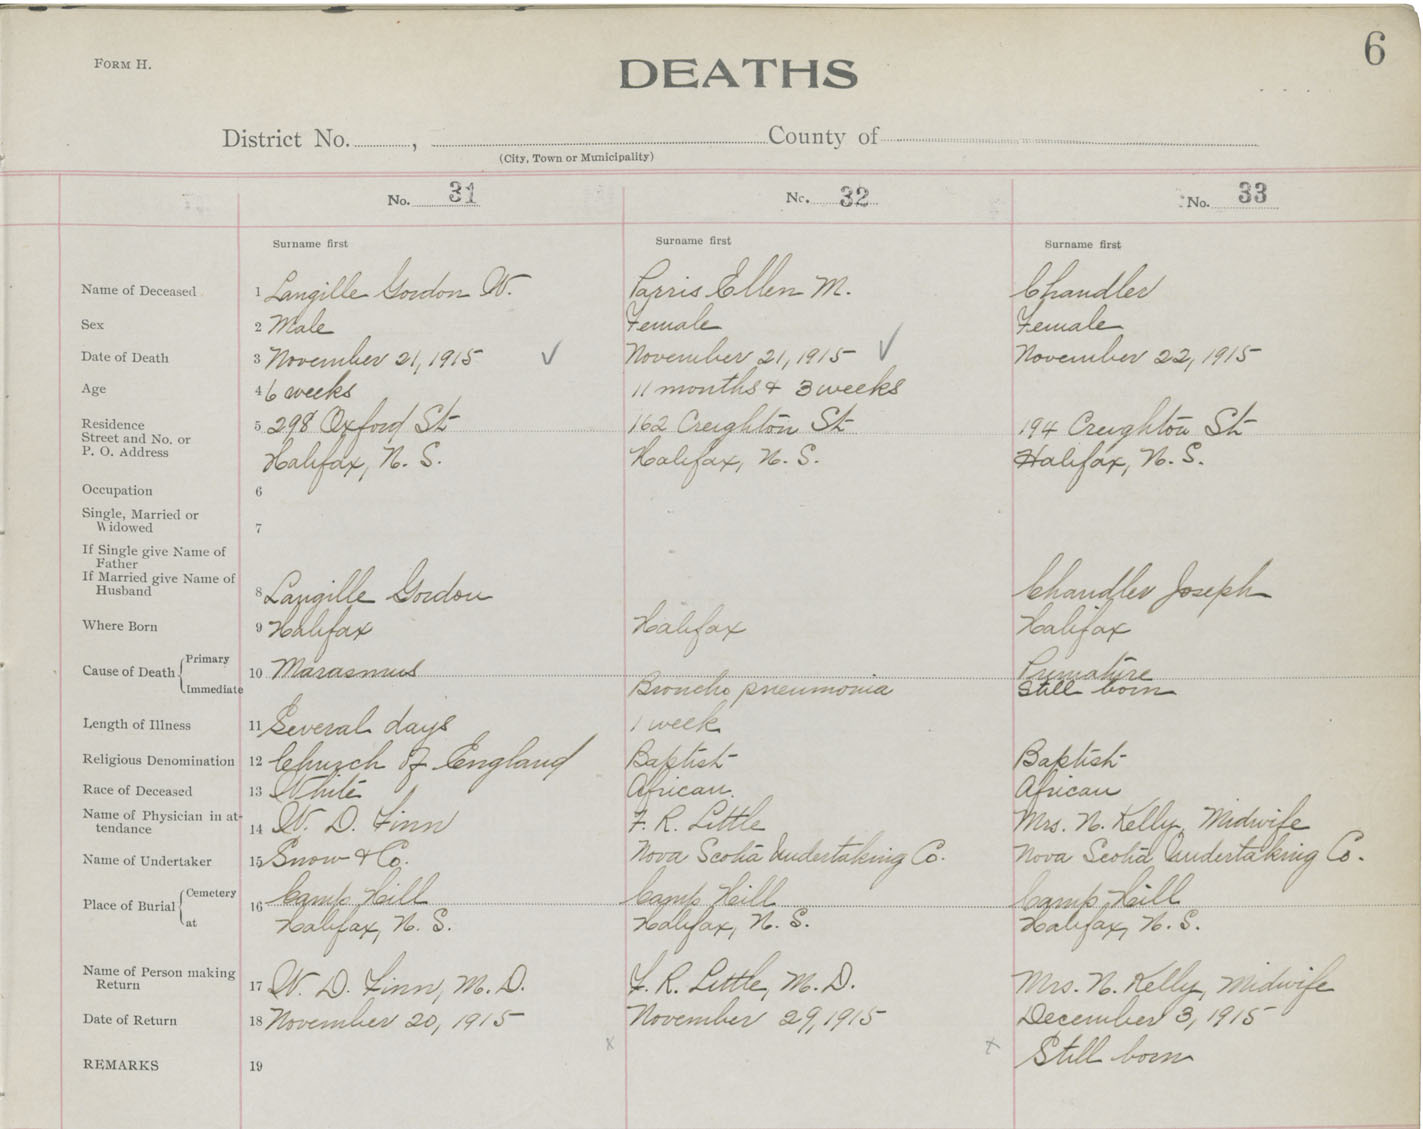 6
FORM H.
DEATHS
District No. , County of
(City, Town or Municipality)
No. 31 No. 32 No. 33
Surname first Surname first Surname first
Name of Deceased 1 Langille Gordon W. Parris Ellen M. Chandler
Sex 2 Male Female Female
Date of Death 3 November 21, 1915 ✓ November 21, 1915 ✓ November 22, 1915
Age 4 6 weeks 11 months & 3 weeks
Residence 5 298 Oxford St 162 Creighton St 194 Creighton St
Street and No. or
P. O. Address Halifax, N. S. Halifax, N. S. Halifax, N. S.
Occupation 6
Single, Married or
Widowed 7
If Single give Name of
Father
If Married give Name of
Husband 8 Langille Gordon Chandler Joseph
Where Born 9 Halifax Halifax Halifax
Cause of Death Primary 10 Marasmus Premature
Immediate Broncho pneumonia Still born
Length of Illness 11 Several days 1 week
Religious Denomination 12 Church of England Baptist Baptist
Race of Deceased 13 White African. African
Name of Physician in at-
tendance 14 W. D. Finn F. R. Little Mrs. N. Kelly, Midwife
Name of Undertaker 15 Snow & Co. Nova Scotia Undertaking Co. Nova Scotia Undertaking Co.
Place of Burial Cemetery 16 Camp Hill Camp Hill Camp Hill
at Halifax, N. S. Halifax, N. S. Halifax, N. S.
Name of Person making
Return 17 W. D. Finn, M. D. F. R. Little, M. D. Mrs. N. Kelly, Midwife
Date of Return 18 November 20, 1915 November 29, 1915 December 3, 1915
REMARKS 19 x x Still born